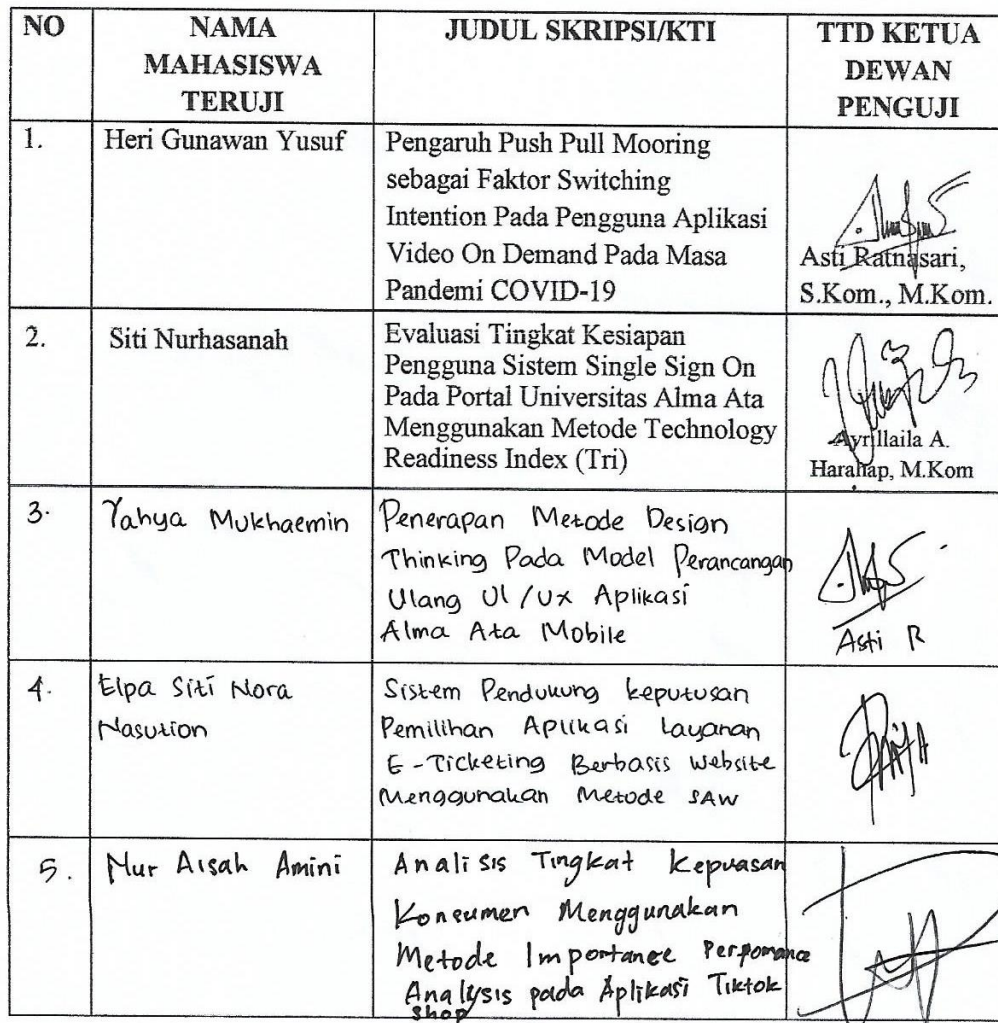 NO
NAMA
MAHASISWA
TERUJI
JUDUL SKRIPSI/KTI
TTD KETUA
DEWAN
PENGUJI
1.
Heri Gunawan Yusuf
Pengaruh Push Pull Mooring
sebagai Faktor Switching
Intention Pada Pengguna Aplikasi
Video On Demand Pada Masa
Pandemi COVID-19
Asti Ratnasari,
S.Kom., M.Kom.
2.
Siti Nurhasanah
Evaluasi Tingkat Kesiapan
Pengguna Sistem Single Sign On
Pada Portal Universitas Alma Ata
Menggunakan Metode Technology
Readiness Index (Tri)
Ayrllaila A.
Harahap, M.Kom
3.
Yahya Mukhaemin
Penerapan Metode Design
Thinking Pada Model Perancangan
Ulang UI/UX Aplikasi
Alma Ata Mobile
Asti R
4.
Elpa Siti Nora
Nasution
Sistem Pendukung keputusan
Pemilihan Aplikasi Layanan
E-Ticketing Berbasis Website
Menggunakan Metode SAW
5.
Nur Aisah Amini
Analisis Tingkat Kepuasan
Konsumen Menggunakan
Metode Importance Perpomance
Analysis pada Aplikasi Tiktok
shop